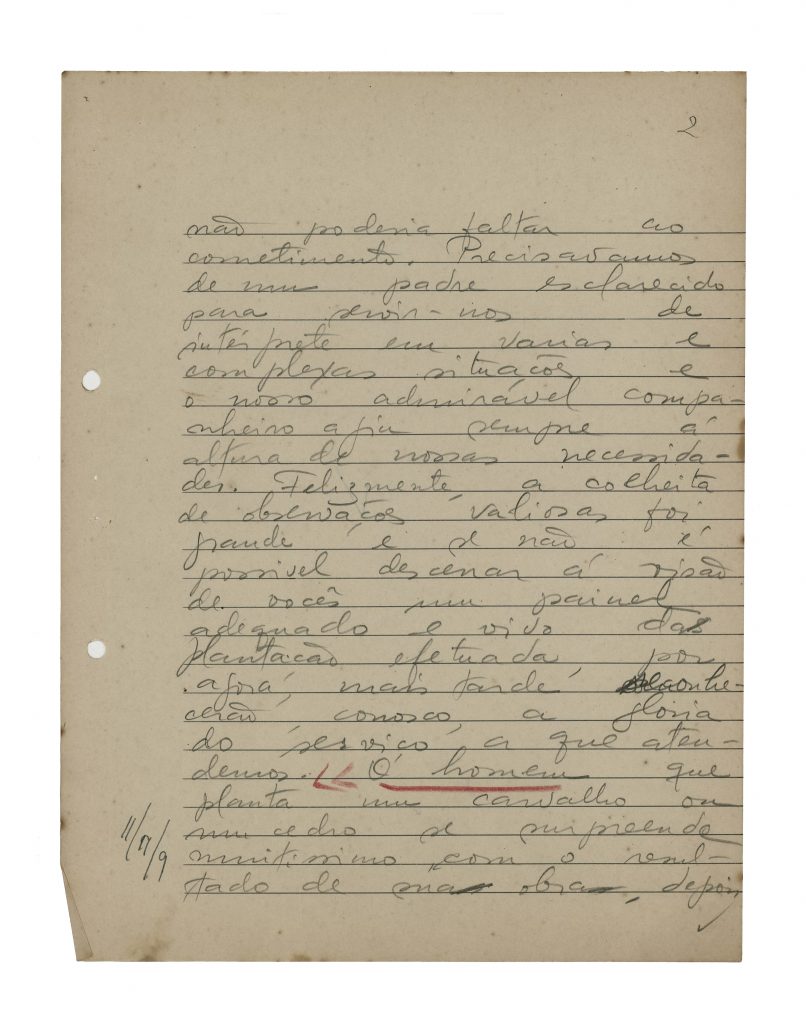 2
não poderia faltar ao
cometimento. Precisavamos
de um padre esclarecido
para servir-nos de
intérprete em varias e
complexas situações e
o nosso admirável compa-
nheiro agiu sempre á
altura de nossas necessida-
des. Felizmente, a colheita
de observações valiosas foi
grande e se não é
possivel descerrar á visão
de vocês um painel
adequado e vivo da
plantação efetuada, por
agora, mais tarde, reconhe-
cerão, conosco, a gloria
do serviço a que aten-
demos. O homem que
planta um carvalho ou
um cedro se surpreende
muitissimo com o resul-
tado de sua obra, depois